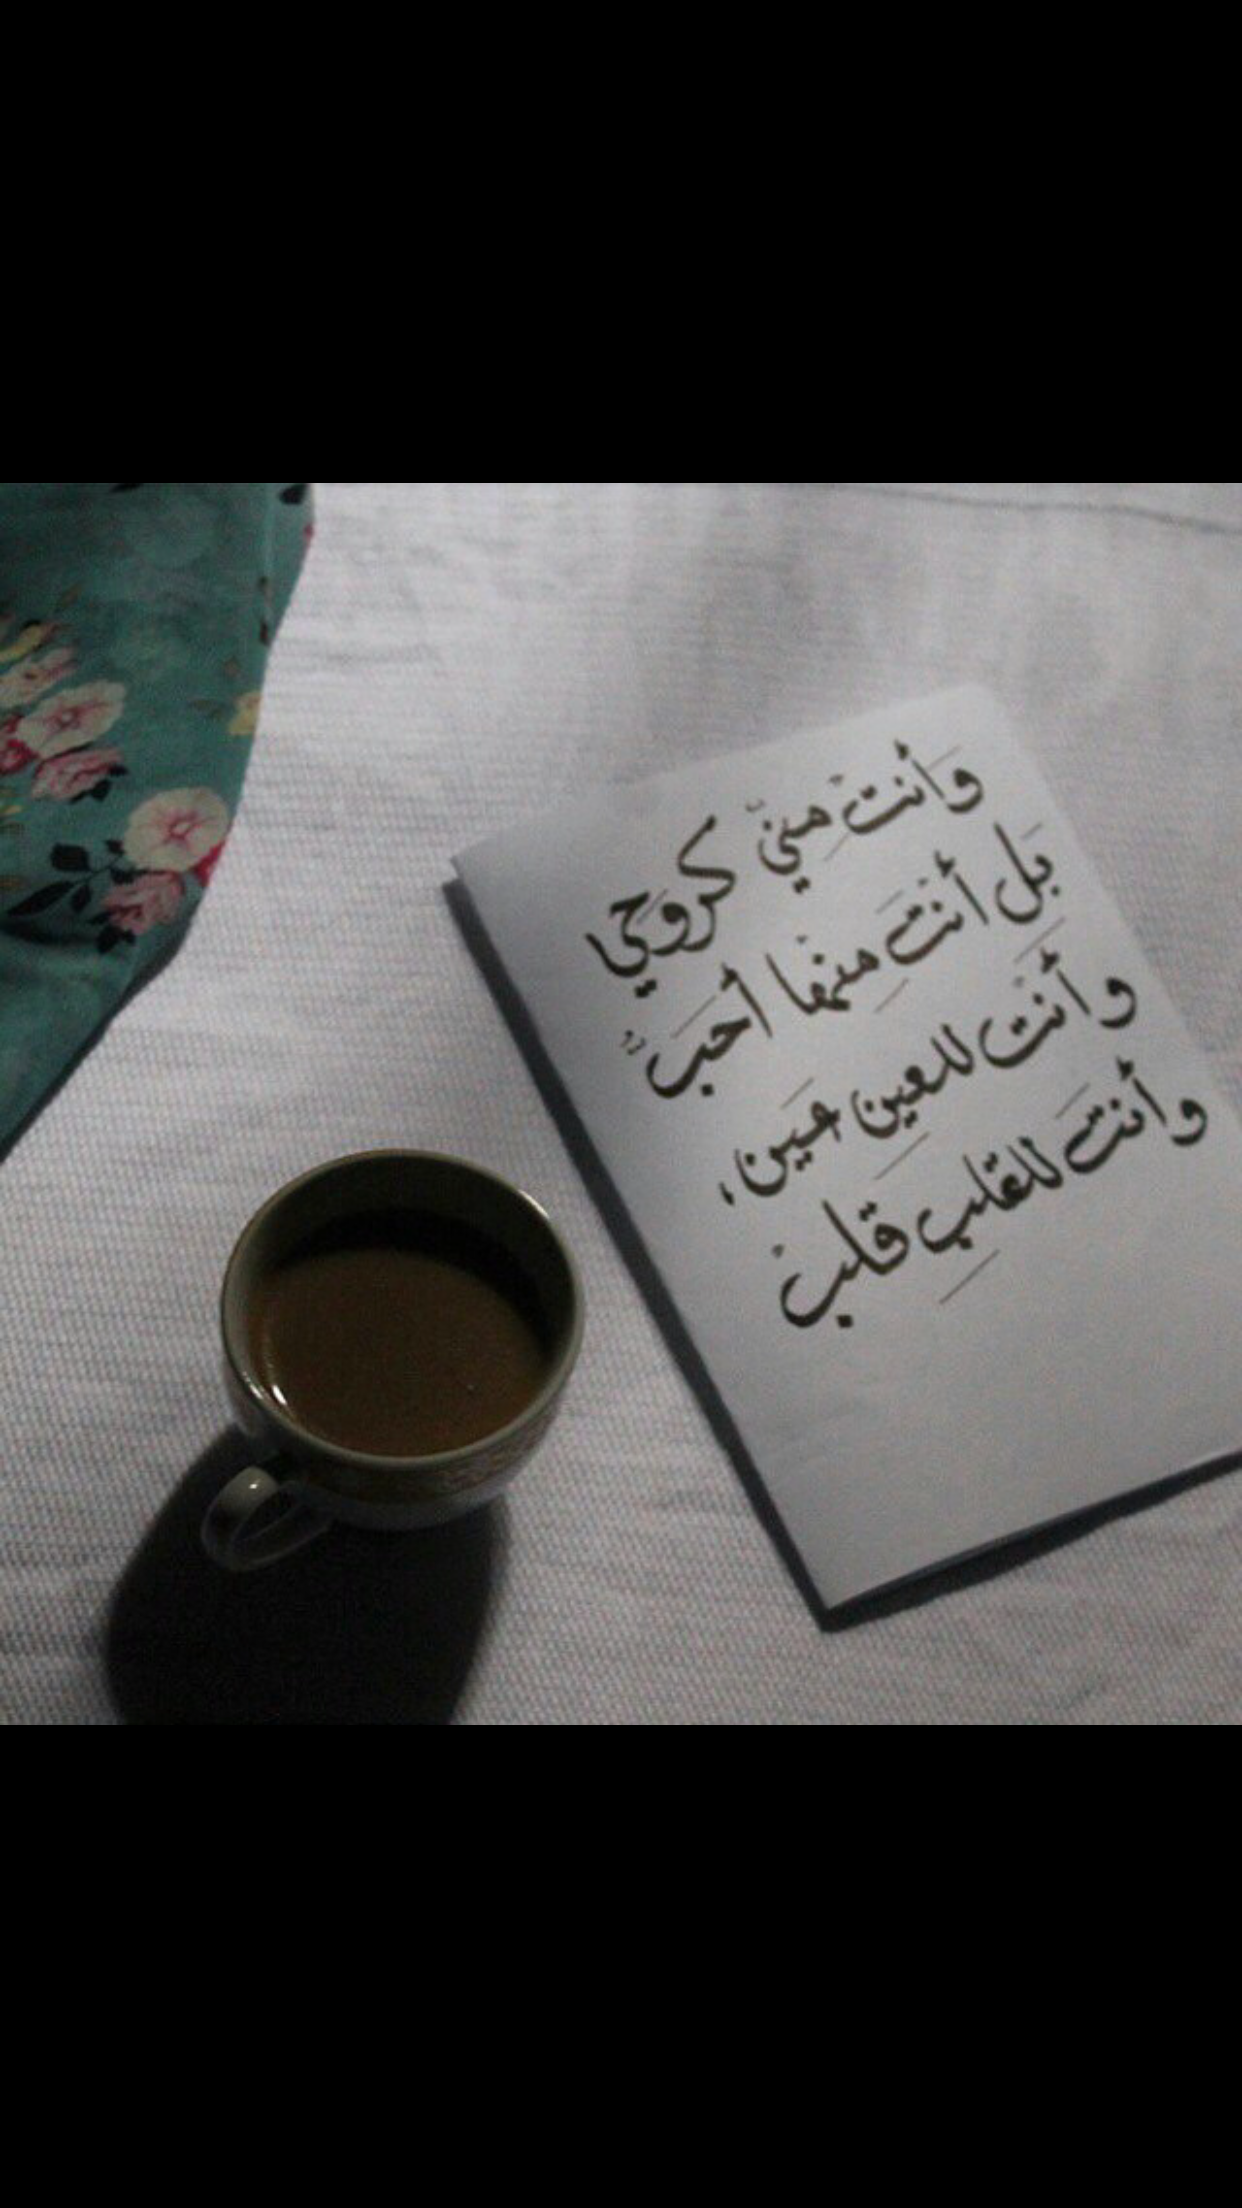 وَأنتَ منيّ كروَحيِ
بَل أنْتَ مِنْها أحَبُّ
وأنْتَ للعينِ عَين،
وأنتَ للقلبِ قلبْ